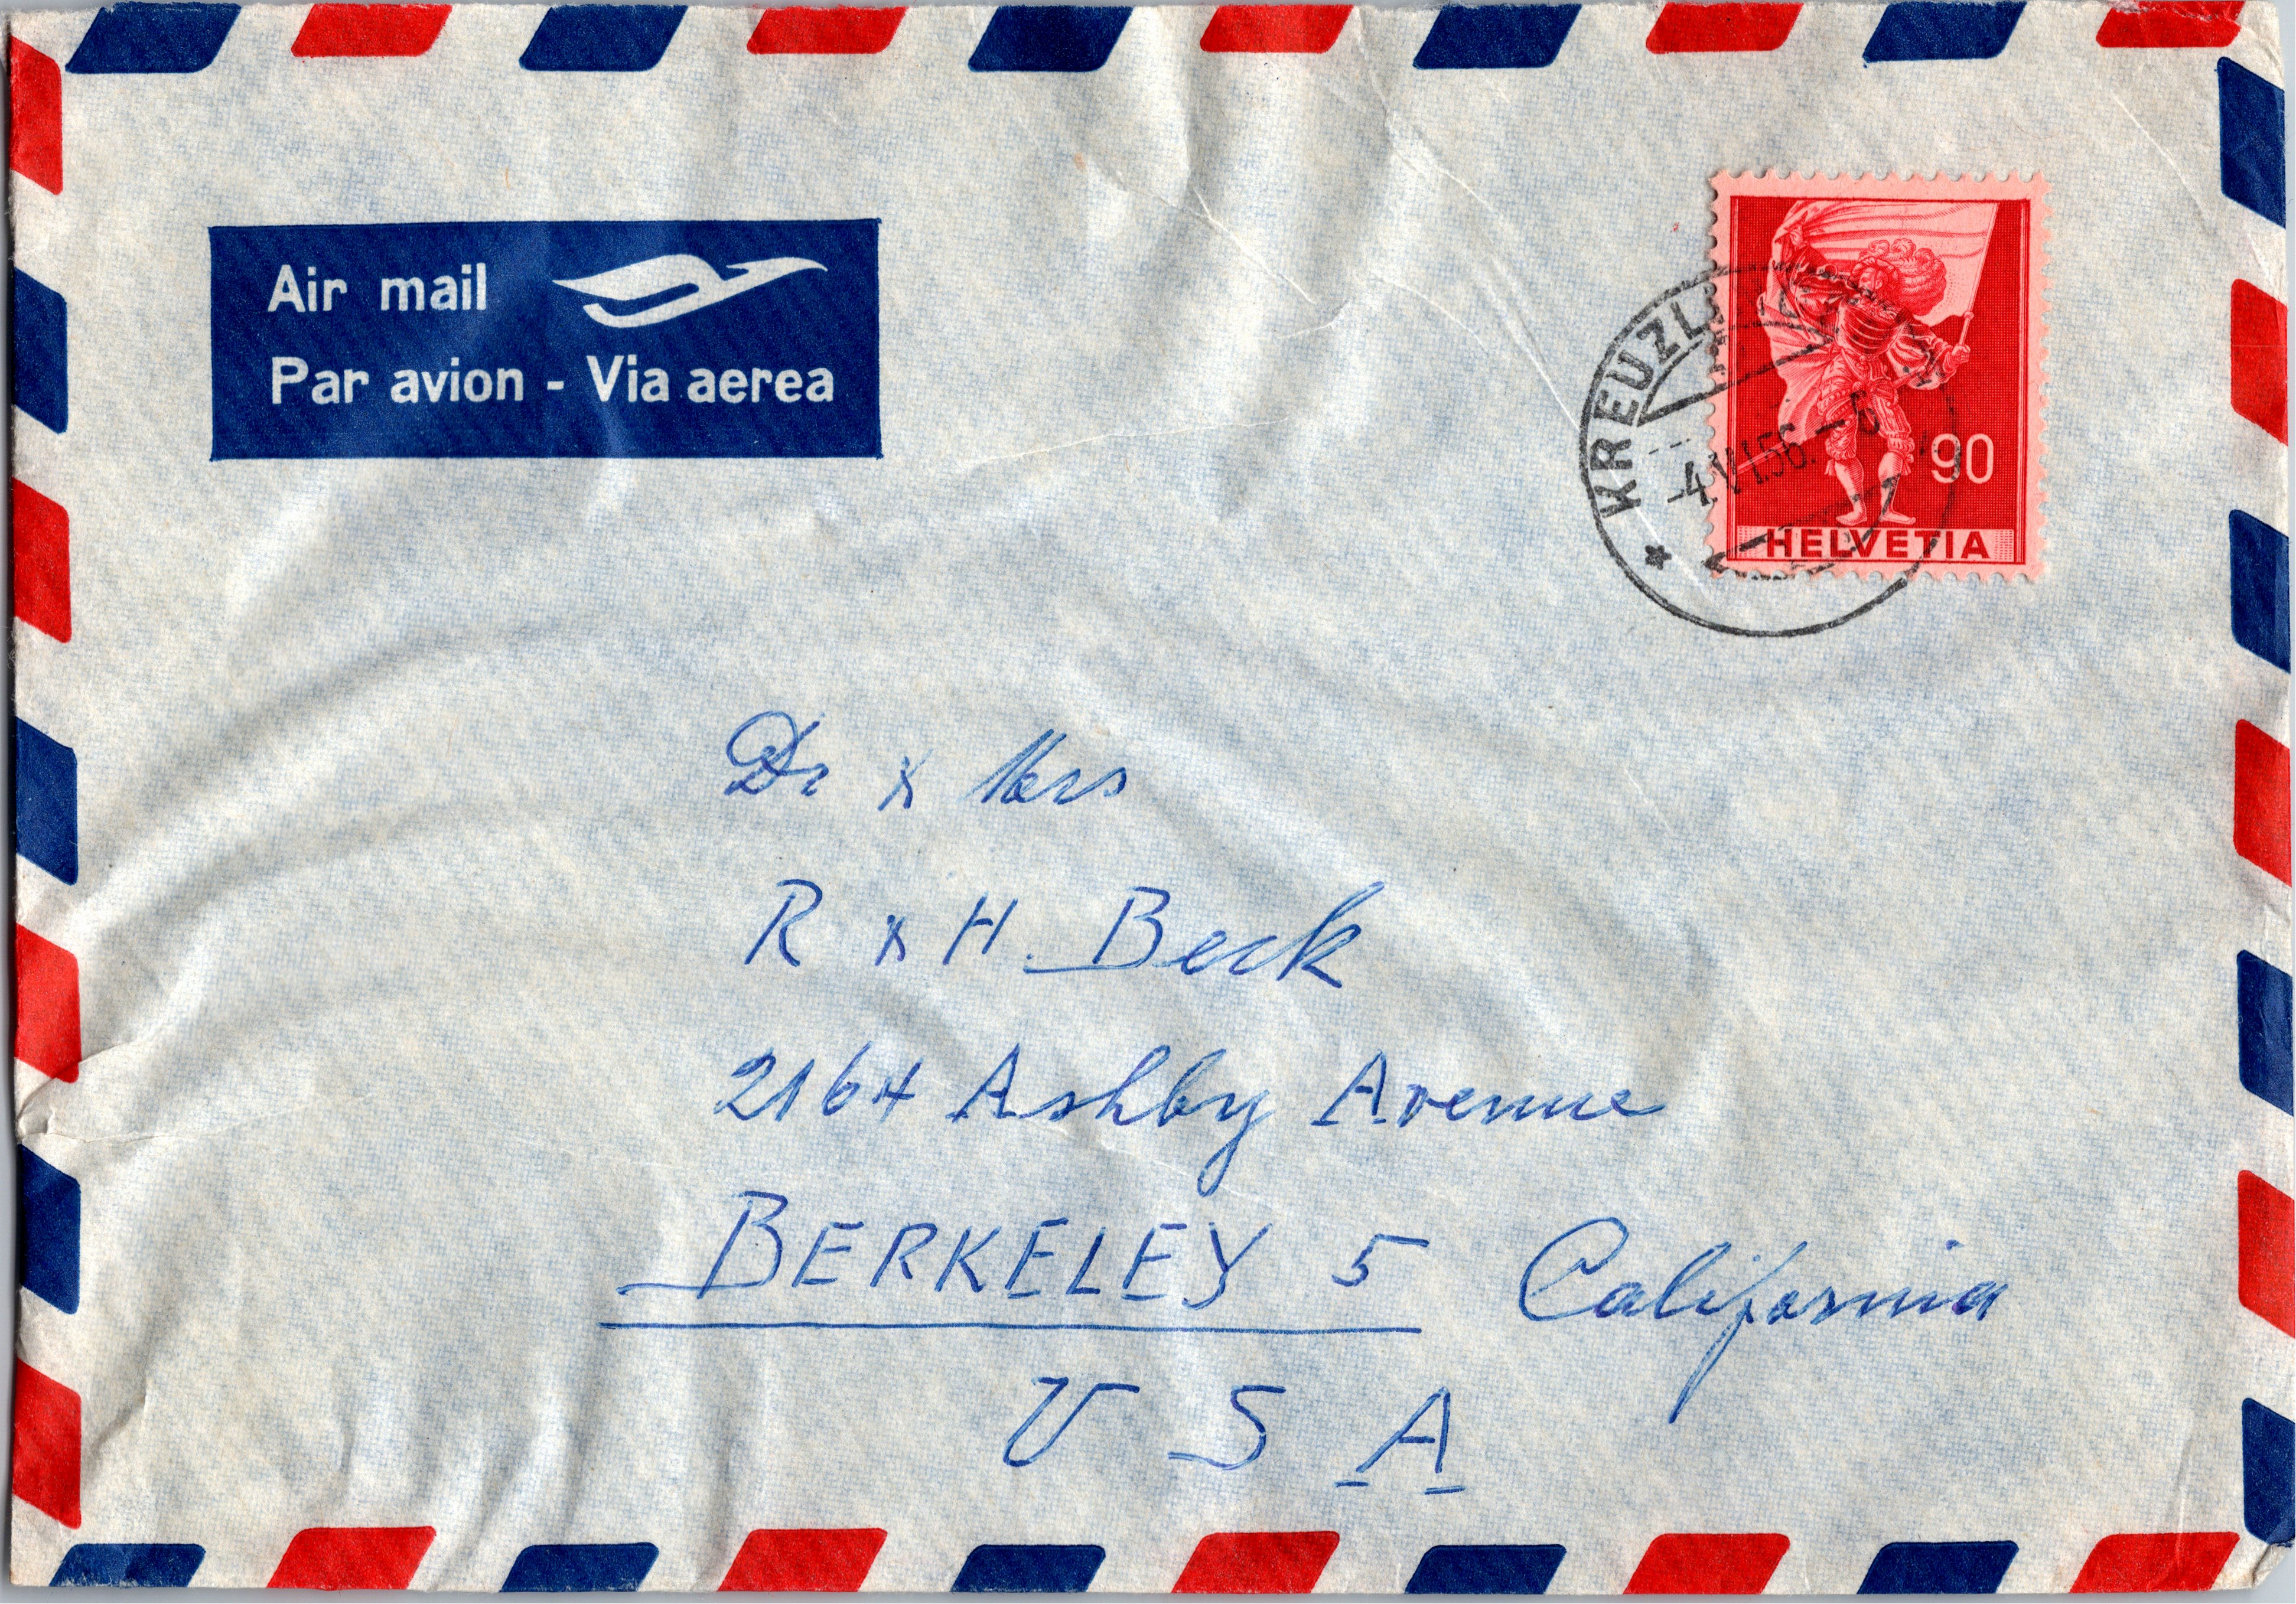 Air mail
Par avion - Via aerea
KREUZLINGEN
-4.VI.56.-
90
HELVETIA
Dr & Mrs
R & H. Beck
2164 Ashby Avenue
BERKELEY 5 California
U S A